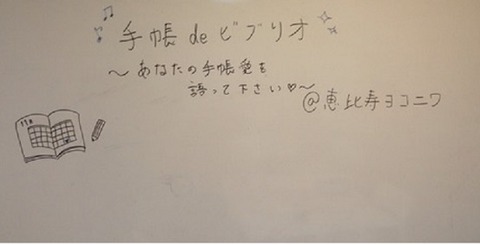 手帳deビブリオ
～あなたの手帳愛を
語って下さい♡～
@恵比寿ヨコニワ
11月